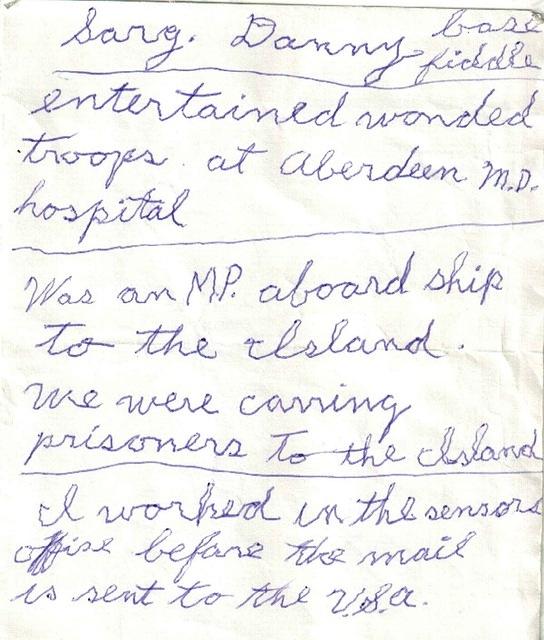 Sarg. Danny base
fiddle
entertained wonded
troops at Aberdeen M.D.
hospital
Was an M.P. aboard ship
to the Island.
We were carring
prisoners to the Island
I worked in the sensors
offise before the mail
is sent to the U.S.a.